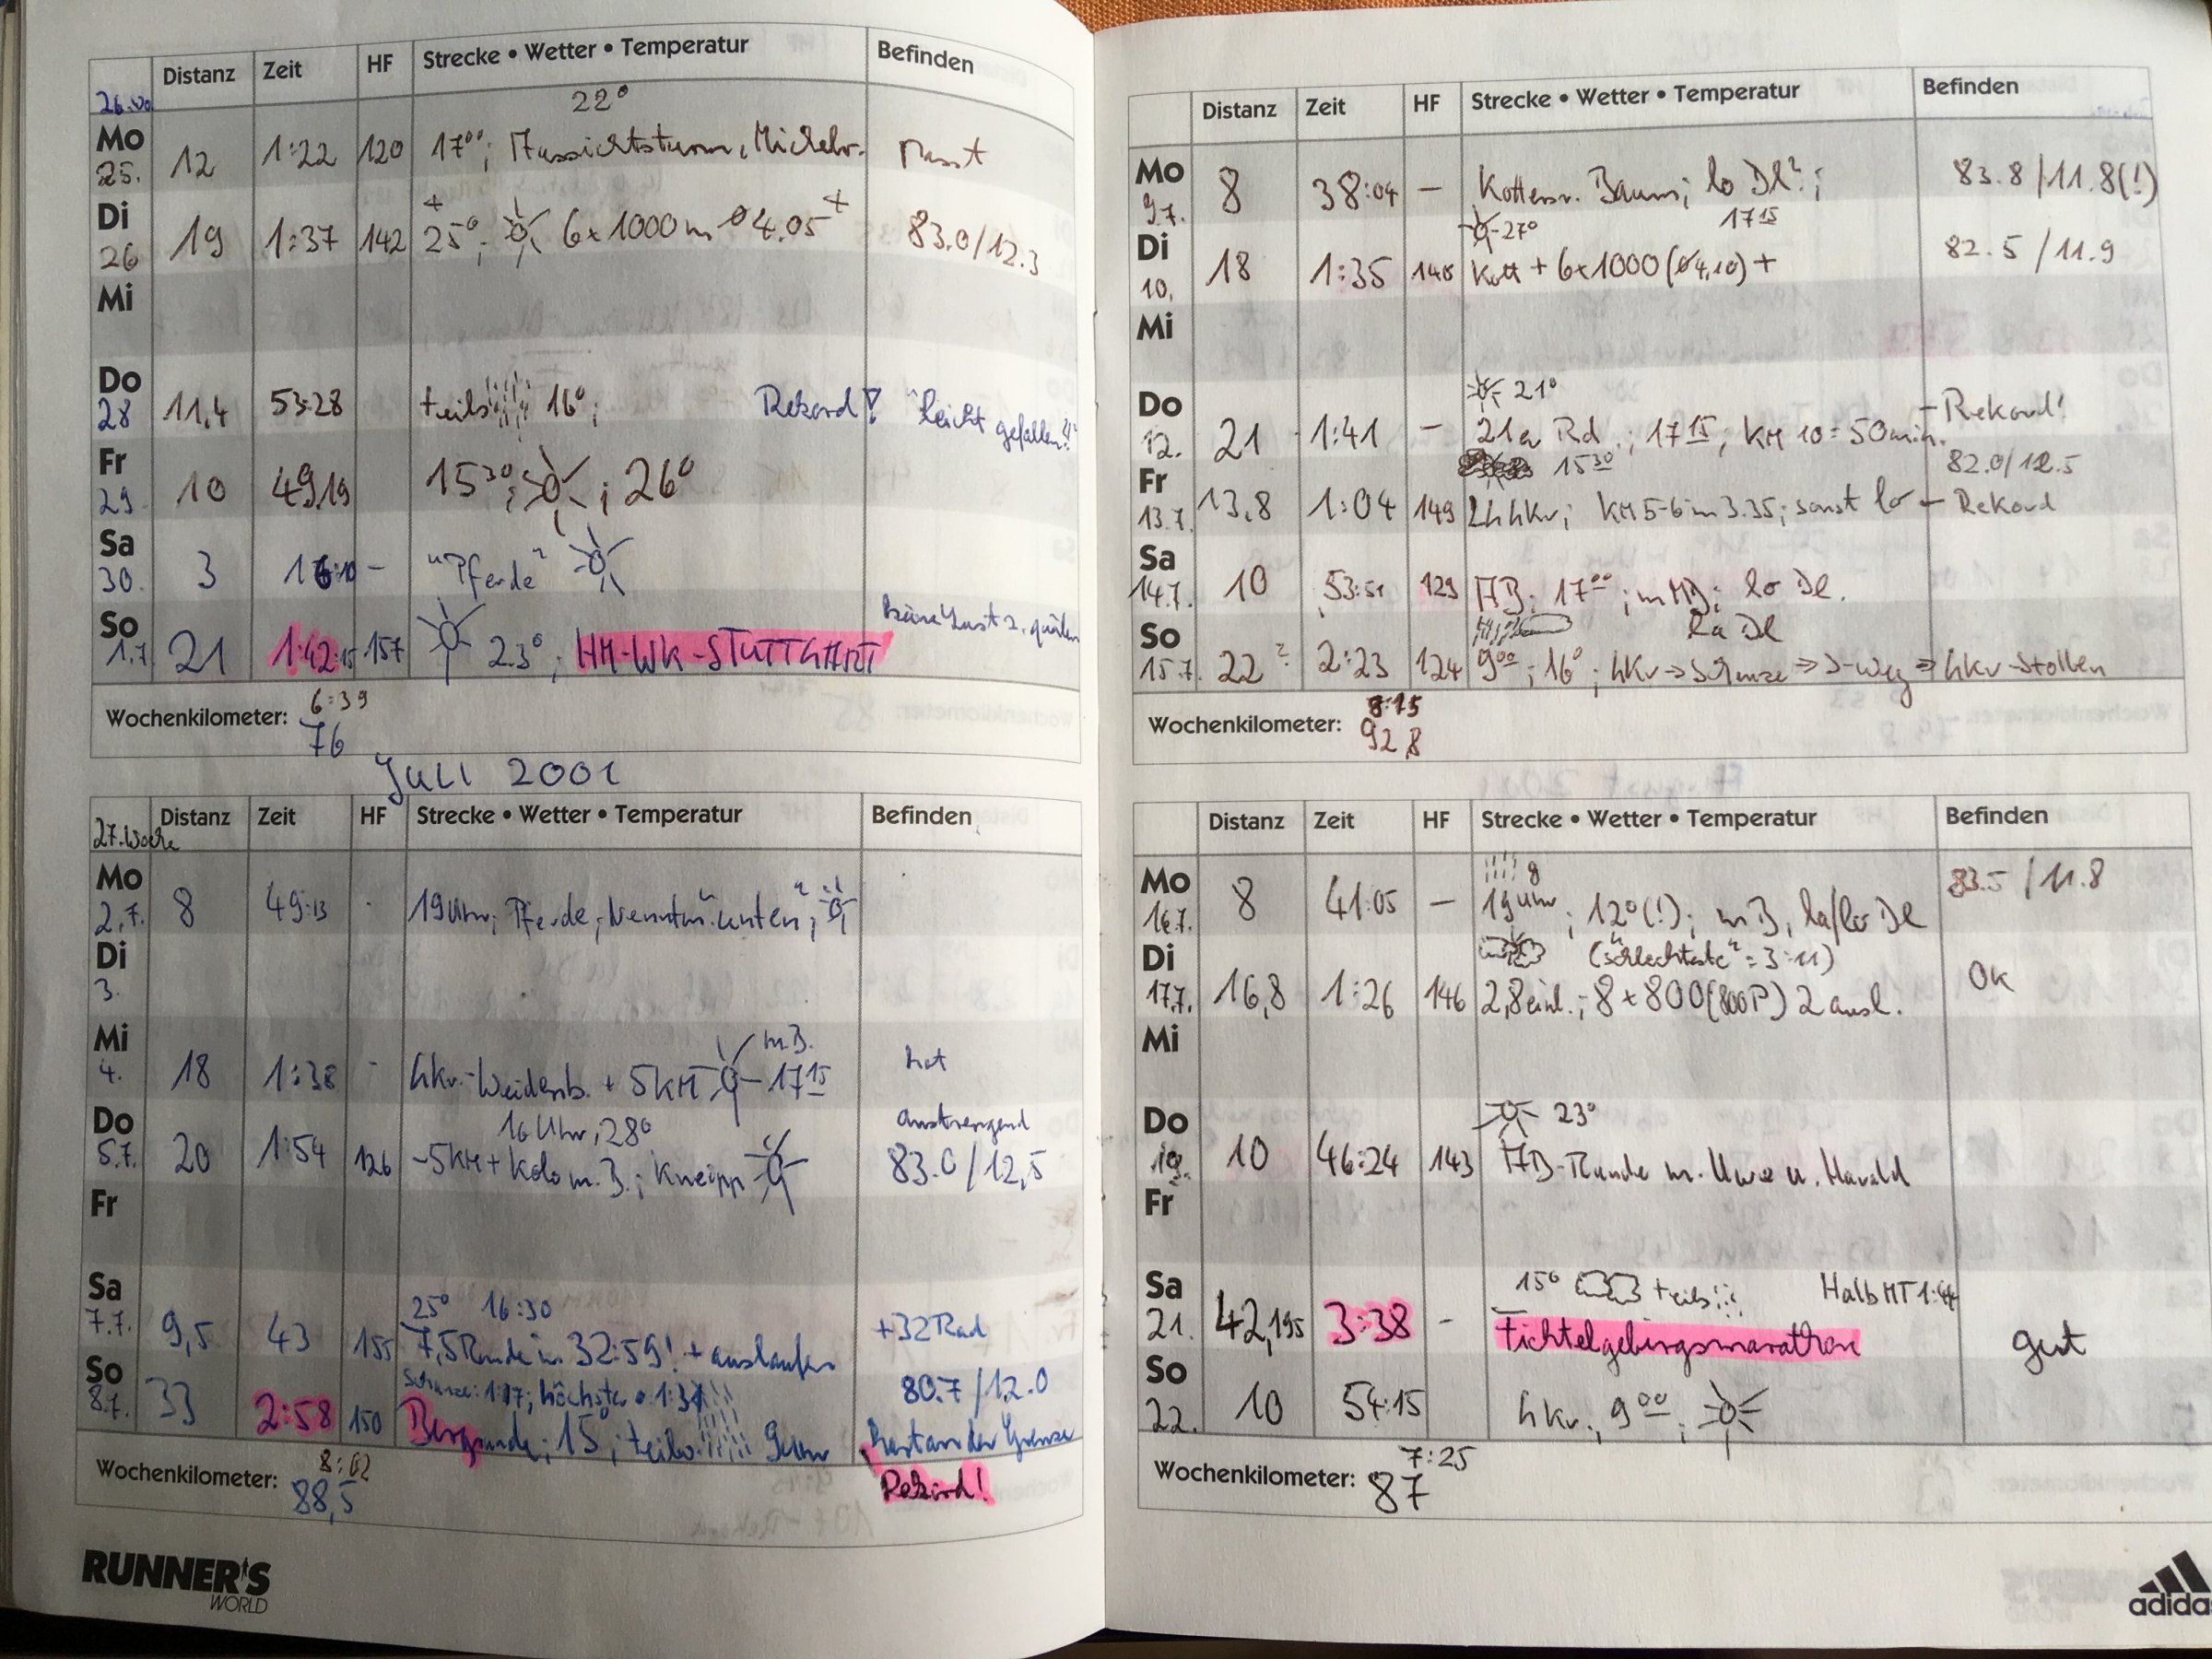 Distanz Zeit HF Strecke • Wetter • Temperatur Befinden
26. Wo 22°
Mo 25. 12 1:22 120 17⁰⁰; Aussichtsturm, Michelr. Passt
Di 26 19 1:37 142 + 25°; 6x1000m ø4.05 + 83.0/12.3
Mi
Do 28 11,4 53:28 teils 16°; Rekord! "leicht gefallen!!"
Fr 29 10 49,19 15³⁰; ; 26°
Sa 30. 3 16:10 - "Pferde"
So 1.7 21 1:42:15 157 23°, HM-WK-STUTTGART keine Lust z. quälen
Wochenkilometer: 6:39
76
JULI 2001
Distanz Zeit HF Strecke • Wetter • Temperatur Befinden
27. Woche
Mo 2.7. 8 49:13 - 19 Uhr; Pferde, "unten";
Di 3.
Mi 4. 18 1:38 - hkr.-Weidenb. + 5KM m.B. 17¹⁵ hot
Do 5.7. 20 1:54 126 16 Uhr, 28° anstrengend
-5KM + Kolo m. B.; Kneipp 83.0/12,5
Fr
Sa 7.7. 9,5 43 155 25° 16:30
7,5 Runde in 32:59! + auslaufen +32 Rad
So 8.7. 33 2:58 150 Schanze: 1:17; höchster 1:31 80.7/12.0
Bergrunde; 15°; teilw. 9 Uhr Fast an der Grenze
Wochenkilometer: 8:02
88,5 Rekord!
RUNNER'S
WORLD
Distanz Zeit HF Strecke • Wetter • Temperatur Befinden
Mo 9.7. 8 38:04 - Kottersr. Baum; lo Dl²; 83.8/11.8(!)
27° 17¹⁵
Di 10. 18 1:35 148 Kott + 6x1000 (ø4,10) + 82.5/11.9
Mi
21°
Do 12. 21 1:41 - 21er Rd.; 17¹⁵; KM 10 = 50min. - Rekord!
15³⁰ 82.0/12.5
Fr 13.7. 13,8 1:04 149 hkr; KM 5-6 in 3.35; sonst lo - Rekord
Sa 14.7. 10 53:51 129 AB; 17⁰⁰; m MB; lo Dl.
la Dl
So 15.7. 22? 2:23 124 9⁰⁰; 16°; hkr → Schanze ⇒ J-Weg ⇒ hkr-Stollen
Wochenkilometer: 8:15
92,8
Distanz Zeit HF Strecke • Wetter • Temperatur Befinden
Mo 16.7. 8 41:05 - 19 Uhr; 12°(!); m B, la/lo Dl 83.5/11.8
("schlechteste" = 3:11)
Di 17.7. 16,8 1:26 146 2,8 einl.; 8x800 (800P) 2 ausl. Ok
Mi
23°
Do 19. 10 46:24 143 AB-Runde m. Uwe u. Harald
Fr
15° + teils Halb MT 1:44
Sa 21. 42,195 3:38 - Fichtelgebirgsmarathon gut
So 22. 10 54:15 hkr., 9⁰⁰;
Wochenkilometer: 7:25
87
adidas